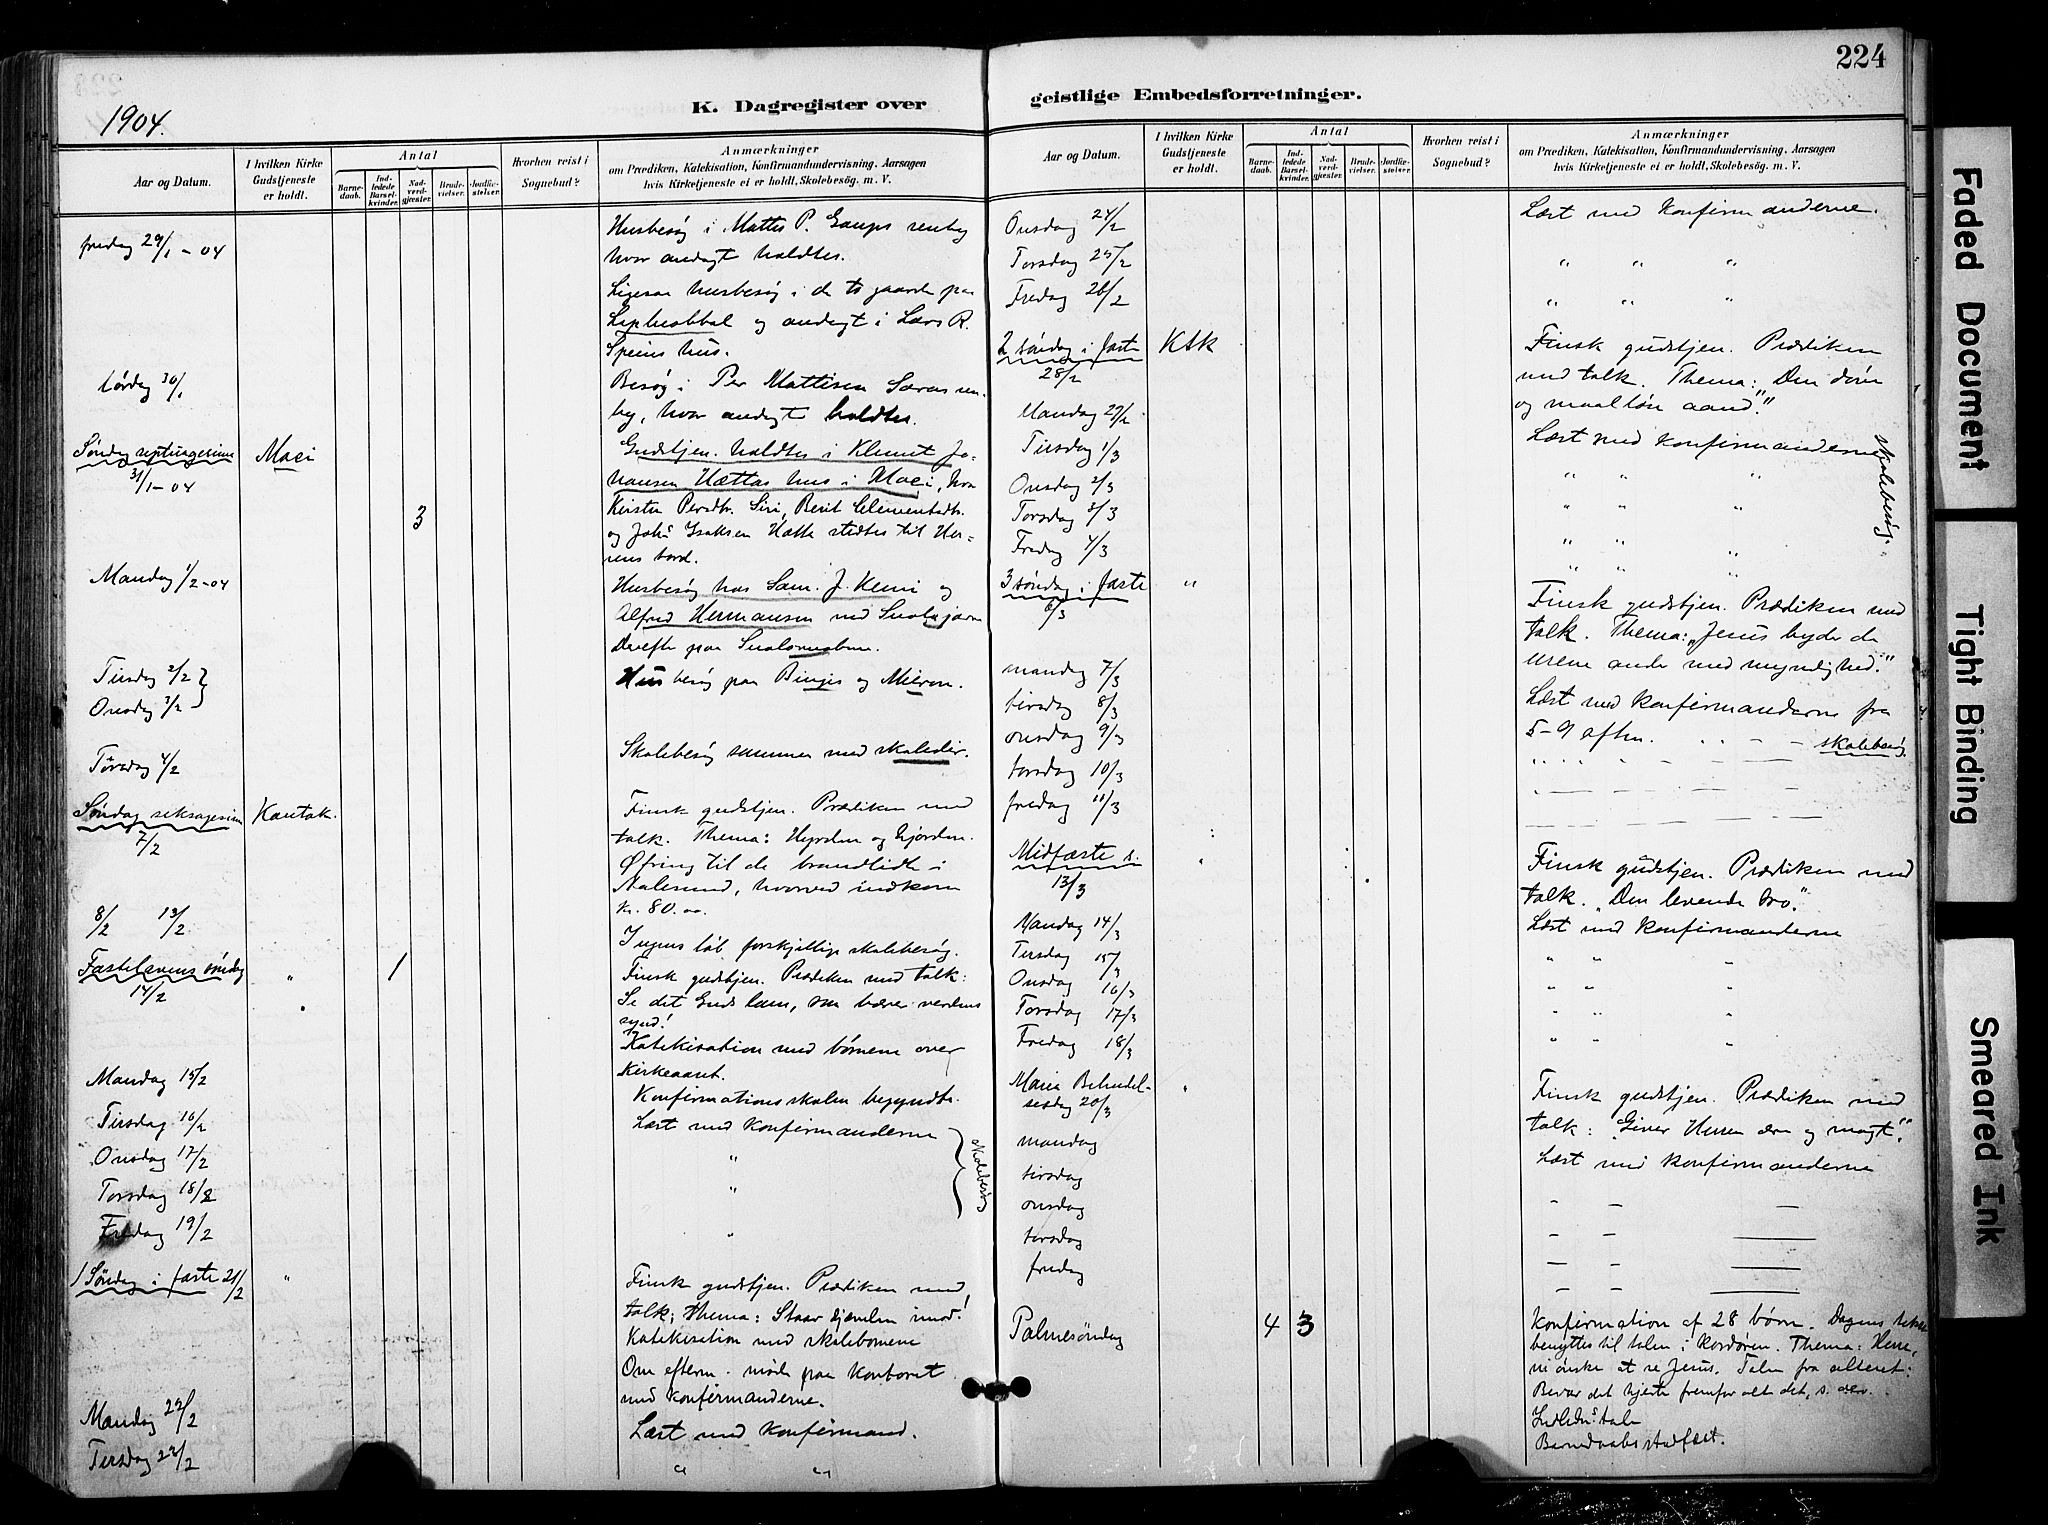 224
K. Dagregister over
geistlige Embedsforretninger.
1904.
Aar og Datum.
I hvilken Kirke Gudstjeneste er holdt.
Antal
Barnedaab.
Indledede Barselkvinder.
Nadverdgjæster.
Brudevielser.
Jordfæstelser.
Hvorhen reist i Sognebud?
Anmærkninger
om Prædiken, Katekisation, Konfirmandundervisning, Aarsagen
hvis Kirketjeneste ei er holdt, Skolebesøg. m. V.
fredag 29/1 - 04
Husbesøg i Mattis P. Gaups renby
hvor andagt holdtes.
Ligesaa husbesøg i de to gaarde paa
og andagt i Lars R.
Speins hus.
Lördag 30/1
Besøg i Per Mattisen Saras ren-
by, hvor andagt holdtes.
Søndag septuagesima Maci
31/1 - 04
Gudstjen. holdtes i Klemet Jo-
hansen Hættas hus i Maci, hvor
3
Kirsten Persdtr. Siri, Berit Clementsdtr.
og Joh. Isaksen Hætta stedtes til Her-
rens bord.
Mandag 1/2 - 04
Husbesøg hos Sam. J. Kemi og
Alfred Hermansen ved
Derefter paa
Tirsdag 2/2
Onsdag 3/2
Husbesøg paa og
Torsdag 4/2
Skolebesøg sammen med
Søndag seksagesima Kautok.
7/2
Finsk gudstjen. Prædiken med
talk. Thema: Hyrden og hjorden.
Øfring til de brandlidte i
Aalesund, hvorved indkom
kr. 80.00.
8/2 13/2
I ugens løb forskjellige skolebesøg.
Fastelavens søndag " 1
14/2
Finsk gudstjen. Prædiken med talk:
Se det Guds lam, som bærer verdens
synd!
Katekisation med børnene over
kirkeaaret.
Mandag 15/2
Konfirmationsskolen begyndte.
Tirsdag 16/2
Læst med konfirmanderne
Onsdag 17/2 "
Torsdag 18/2 "
Fredag 19/2 "
Skolebesøg
1 Søndag i faste 21/2 "
Finsk gudstjen. Prædiken med
talk; Thema: Staar djævelen imod!
Katekisation med skolebørnene
Om efterm. møde paa kontoret
med konfirmanderne.
Mandag 22/2
Læst med konfirmand.
Tirsdag 23/2 " "
Aar og Datum.
I hvilken Kirke Gudstjeneste er holdt.
Antal
Barnedaab.
Indledede Barselkvinder.
Nadverdgjæster.
Brudevielser.
Jordfæstelser.
Hvorhen reist i Sognebud?
Anmærkninger
om Prædiken, Katekisation, Konfirmandundervisning, Aarsagen
hvis Kirketjeneste ei er holdt, Skolebesøg. m. V.
Onsdag 24/2
Læst med konfirmanderne.
Torsdag 25/2 " " "
Fredag 26/2 " " "
2 søndag i faste Ktk
28/2
Finsk gudstjen. Prædiken
med talk. Thema: "Den døve
og maalløse aand".
Mandag 29/2
Læst med konfirmanderne
Tirsdag 1/3 " " "
Onsdag 2/3 " " "
Torsdag 3/3 " " "
Fredag 4/3 " " "
Skolebesøg.
3 søndag i faste "
6/3
Finsk gudstjen. Prædiken med
talk. Thema: "Jesus byder de
urene ander med myndighed."
mandag 7/3
Læst med konfirmanderne fra
tirsdag 8/3
5-9 eftm. skolebesøg
onsdag 9/3
torsdag 10/3
fredag 11/3
Midfaste s. "
13/3
Finsk gudstjen. Prædiken med
talk. "Den levende tro".
Mandag 14/3
Læst med konfirmanderne
Tirsdag 15/3 " " "
Onsdag 16/3 " " "
Torsdag 17/3 " " "
Fredag 18/3 " " "
Maria Bebudel- "
sesdag 20/3
Finsk gudstjen. Prædiken med
talk: "Giver Herren ære og magt".
mandag
Læst med konfirmanderne
tirsdag
onsdag
torsdag
fredag
Palmesöndag 4 3
Konfirmation af 28 børn. Dagens tekst
benyttes til talen i kordøren. Thema: Herre,
vi ønske at se Jesus. Talen fra alteret:
Bevar dit hjerte fremfor alt det, s.
Barnedaab stadfæst.
Faded Document
Tight Binding
Smeared Ink